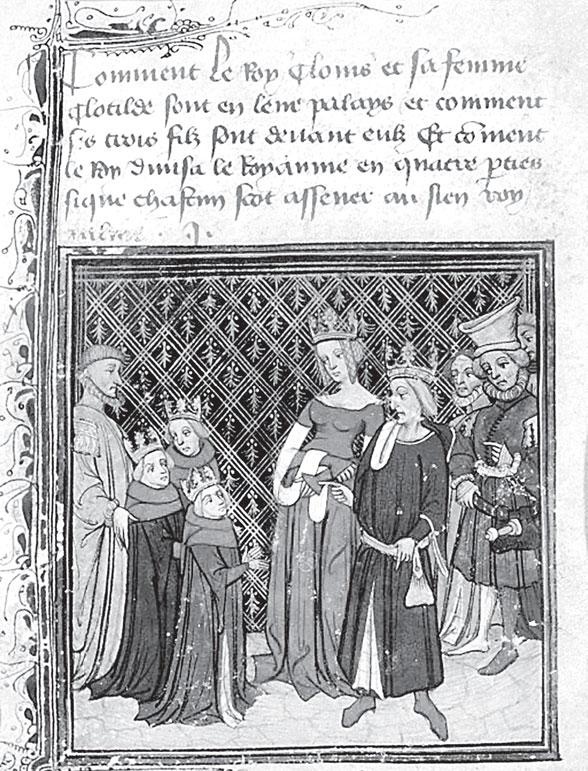 Comment Le Roy Clouis et sa femme
Clotilde sont en leur palays et comment
ses trois filz sont deuant eulz Et cōment
le Roy diuisa le Royaume en quatre pties
si que chascun scot assener au sien roy